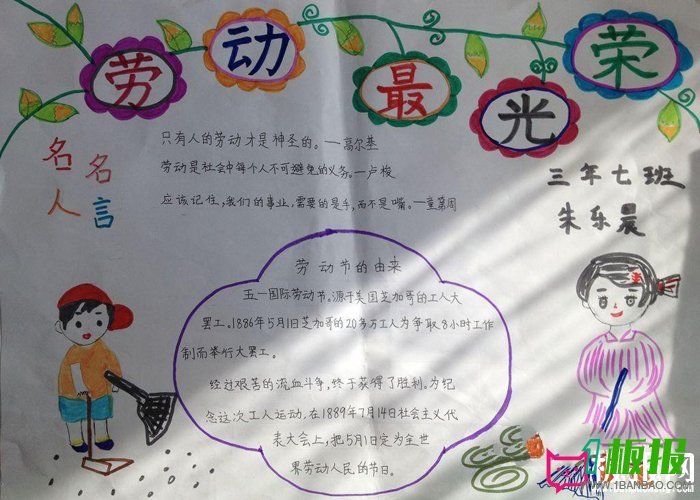 劳动最光荣
名人名言
只有人的劳动才是神圣的。—高尔基
劳动是社会中每个人不可避免的义务。—卢梭
应该记住,我们的事业,需要的是手,而不是嘴。—童第周
三年七班
朱乐晨
劳动节的由来
五一国际劳动节,源于美国芝加哥的工人大
罢工。1886年5月1日芝加哥的20多万工人为争取8小时工作
制而举行大罢工。
经过艰苦的流血斗争,终于获得了胜利。为纪
念这次工人运动,在1889年7月14日社会主义代
表大会上,把5月1日定为全世
界劳动人民的节日。
板报网
WWW.1BANBAO.COM